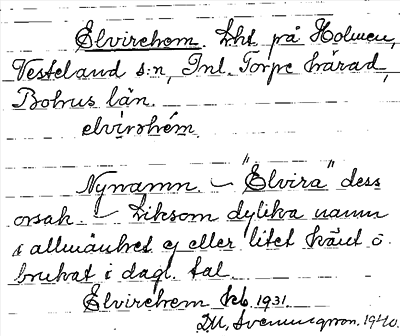 Elvirehem. Lht på Holmen,
Vesteland s:n, Inl. Torpe härad,
Bohus län.
elvirehém
Nynamn. – "Elvira" dess
orsak. – Liksom dylika namn
i allmänhet ej eller litet känt o.
brukat i dagl. tal.
Elvirehem kb. 1931.
D.U. Svenningson. 1940.